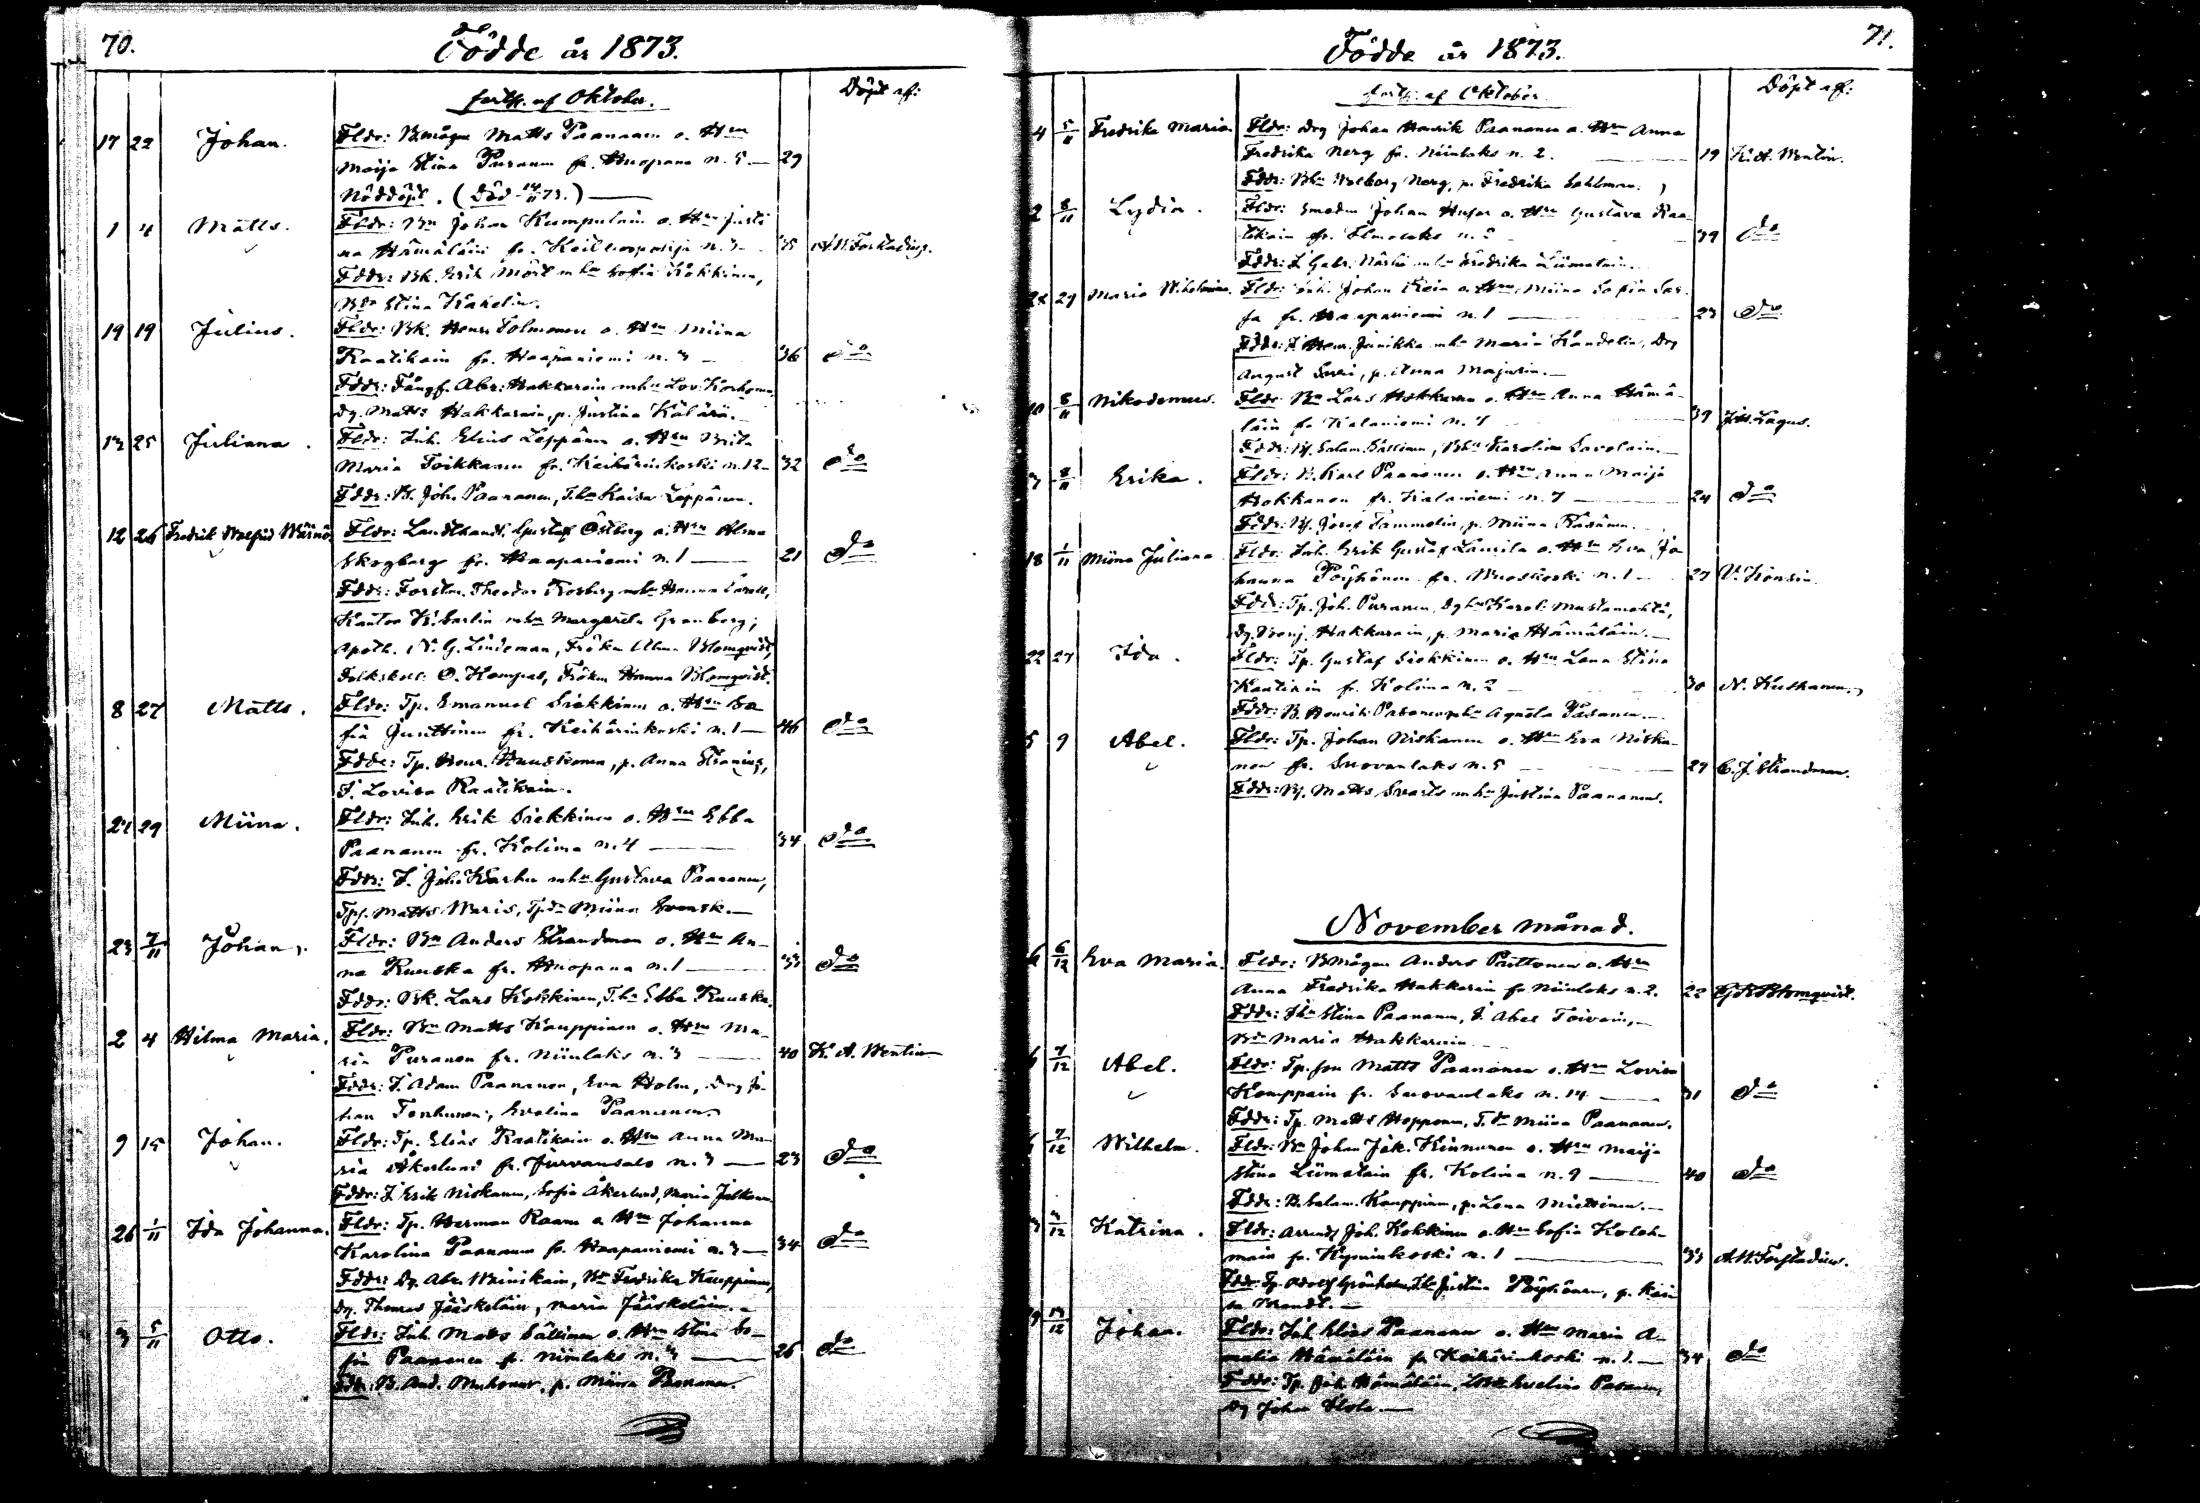 70.
Födde år 1873.
forts. af Oktober.
Döpt af:
17 22 Johan. Fldr: Bmågen Matts Paananen o. Hru
Maija Stina Puranen fr. Huopana n. 5 — 29
Nöddöpt. (Död 14/11 73.) —
1 4 Matts. Fldr: Bn Johan Kumpulain o. Hru Justi
na Hämäläin fr. n. 3 — 35 A.W. Forstadius.
Fddr: Bk. Erik m. h. Sofia Kokkinen,
Bdr Stina Kakelin.
19 19 Julius. Fldr: Bk. Henr. Tolmonen o. Hru Miina
Raatikain fr. Haapaniemi n. 3 — 36 do
Fddr: Fångf. Abr. Hakkarain mhu Lov. Korhonen
dg. Matts Hakkarain, p. Justina
13 25 Juliana. Fldr: Inh. Elias Leppänen o. Hru Brita
Maria Toikkanen fr. Keihärinkoski n. 12 — 32 do
Fddr: B. Joh. Paananen, T.hu Kaisa Leppänen.
12 26 Fredrik Walfrid Wäinö. Fldr: Landthandl. Gustaf Östberg o. Hru Alma
Skogberg fr. Haapaniemi n. 1 — 21 do
Fddr: Forstm. Theodor mhu Hanna
Kantor K. mhu Margareta Granberg,
Apoth. N. G. Lindeman, Fröken Alma Blomqvist,
Folkskoll. O. Kompas, Fröken Hanna Blomqvist.
8 27 Matts. Fldr: Tp. Emanuel Siekkinen o. Hru So
fia Gunttinen fr. Keihärinkoski n. 1 — 46 do
Fddr: Tp. Henr. Huuskonen, p. Anna
I. Lovisa Raatikain.
27 29 Miina. Fldr: Inh. Erik Siekkinen o. Hru Ebba
Paananen fr. Kolima n. 4 — 34 do
Fddr: I. Joh. Karhu mhu Gustava Paananen,
Tpf. Matts Waris, Tpdr Miina Svensk. —
23 7/11 Johan. Fldr: Bn Anders Strandman o. Hru An-
na Ruuska fr. Huopana n. 1 — 33 do
Fddr: Bk. Lars Kokkinen, T.hu Ebba Ruuska.
2 4 Hilma Maria. Fldr: Bn Matts Kauppinen o. Hru Ma-
ria Puranen fr. Niinilaks n. 3 — 40 K. A. Wentin
Fddr: I. Adam Paananen, Eva Holm, Drg Jo-
han Tenhunen, Evelina Paananen.
9 15 Johan. Fldr: Tp. Elias Raatikain o. Hru Anna Ma-
ria Åkerlund fr. Jurvansalo n. 3 — 23 do
Fddr: I. Erik Niskanen, Sofia Åkerlund, Maria
26 1/11 Ida Johanna. Fldr: Tp. Herman o. Hru Johanna
Karolina Paananen fr. Haapaniemi n. 3 — 34 do
Fddr: Dg. Abr. Weinikain, Bn Fredrika Kauppinen,
Dg. Thomas Jääskeläin, Maria Jääskeläin. —
3 5/11 Otto. Fldr: Inh. Matts Sällinen o. Hru Stina So-
fia Paananen fr. Niinilaks n. 3 — 26 do
Fddr: B. And. Muhonen, p. Miina Paananen.
71.
Födde år 1873.
forts. af Oktober.
Döpt af:
4 5/11 Fredrika Maria. Fldr: Drg Johan Henrik Paananen o. Hru Anna
Fredrika Nerg fr. Niinilaks n. 2. — 19 K. A. Wentin.
Fddr: Bhu Walborg Nerg, p. Fredrika Sahlman.
2 8/11 Lydia. Fldr: Smeden Johan o. Hru Gustava Raa-
tikain fr. n. 2 39 do
Fddr: I. Gabr. mhu Fredrika Liimatain.
22 27 Maria Wilhelmina. Fldr: Inh. Johan o. Hru Miina Sofia
fr. Haapaniemi n. 1 — 23 do
Fddr: I. Henr. Jänikka mhu Maria Kandelin, Drg
August p. Anna
10 8/11 Nikodemus. Fldr: Bn Lars Hakkarain o. Hru Anna Hämä-
läin fr. Kalaniemi n. 7 39 J.H. Lagus.
Fddr: Bf. Salam. Sällinen, Bhu Karolina Savolain. —
3 8/11 Erika. Fldr: B. Karl Paananen o. Hru Anna Maija
Hokkanen fr. Kalaniemi n. 7 — 24 do
Fddr: Bf. Josef Tammelin, p. Miina Räsänen.
18 1/11 Miina Juliana. Fldr: Inh. Erik Gustaf Laurila o. Hru Eva Jo
hanna Pöyhönen fr. Wuoskoski n. 1 — 27 V. Könsin
Fddr: Tp. Joh. Puranen, Dghu Karol. Mustamahtä,
Dg. Benj. Hakkarain, p. Maria Hämäläin. —
22 27 Ida. Fldr: Tp. Gustaf Siekkinen o. Hru Lena Stina
Kautiain fr. Kolima n. 2 — 30 N. Kuhanen.
Fddr: B. Henrik Pasanen mhu Agneta Pasanen. —
5 9 Abel. Fldr: Tp. Johan Niskanen o. Hru Eva Niska-
nen fr. Suovanlaks n. 5 — 27 C. J. Strandman.
Fddr: Bf. Matts Svarts mhu Justina Paananen.
November månad.
6 6/12 Eva Maria. Fldr: Bmågen Anders Parttonen o. Hru
Anna Fredrika Hakkarain fr. Niinilaks n. 2. 22 Blomqvist.
Fddr: Ihu Stina Paananen, I. Abel Toivain, —
Bdr Maria Hakkarain
6 7/12 Abel. Fldr: Tp. son Matts Paananen o. Hru Lovisa
Kauppain fr. Suovanlaks n. 14 — 31 do
Fddr: Tp. Matts Hopponen, T. dr Miina Paananen.
7/12 Wilhelm. Fldr: Bn Johan Jak. Kinnunen o. Hru Maija
Stina Liimatain fr. Kolima n. 9 — 40 do
Fddr: B. Salam. Kauppinen, p. Lena Miettinen. —
Katrina. Fldr: Arrend. Joh. Kokkinen o. Hru Sofia Koleh-
main fr. Kyminkoski n. 1 — 33 A.W. Forstadius.
Fddr: Tp. Adolf Grönholm, I.hu Justina Pöyhönen, p. Kai
sa Brandt. —
Johan. Fldr: Inh. Elias Paananen o. Hru Maria A-
malia Hämäläin fr. Keihärinkoski n. 1. — 34 do
Fddr: Tp. Joh. Hämäläin, Evelina Pasanen,
Dg Johan